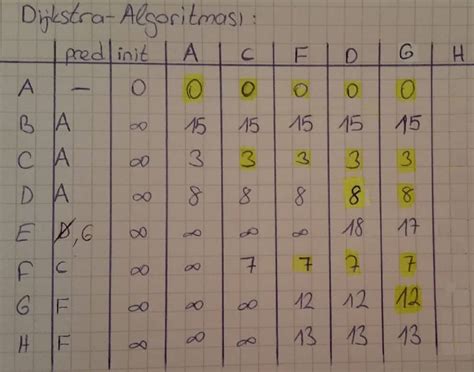 Dijkstra-Algoritması:
pred init A C F D G H
A — 0 0 0 0 0 0
B A ∞ 15 15 15 15 15
C A ∞ 3 3 3 3 3
D A ∞ 8 8 8 8 8
E D, G ∞ ∞ ∞ ∞ 18 17
F C ∞ ∞ 7 7 7 7
G F ∞ ∞ ∞ 12 12 12
H F ∞ ∞ ∞ 13 13 13